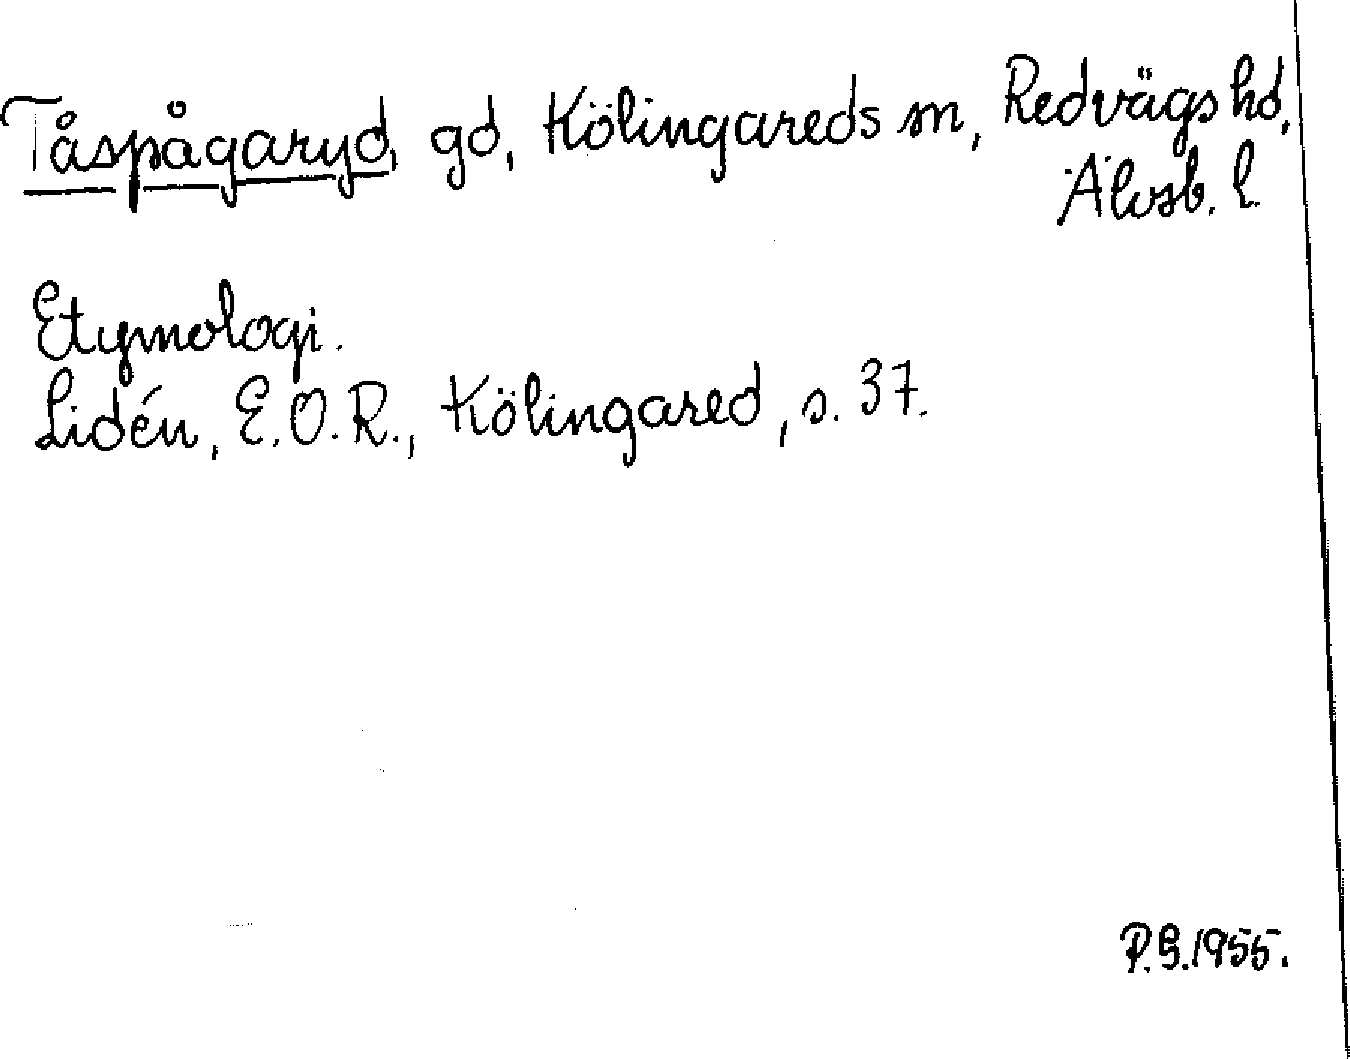 Tåspågaryd, gd, Kölingareds sn, Redvägs hd,
Älvsb. l.
Etymologi.
Lidén, E.O.R., Kölingared, s. 37.
P.G.1955.